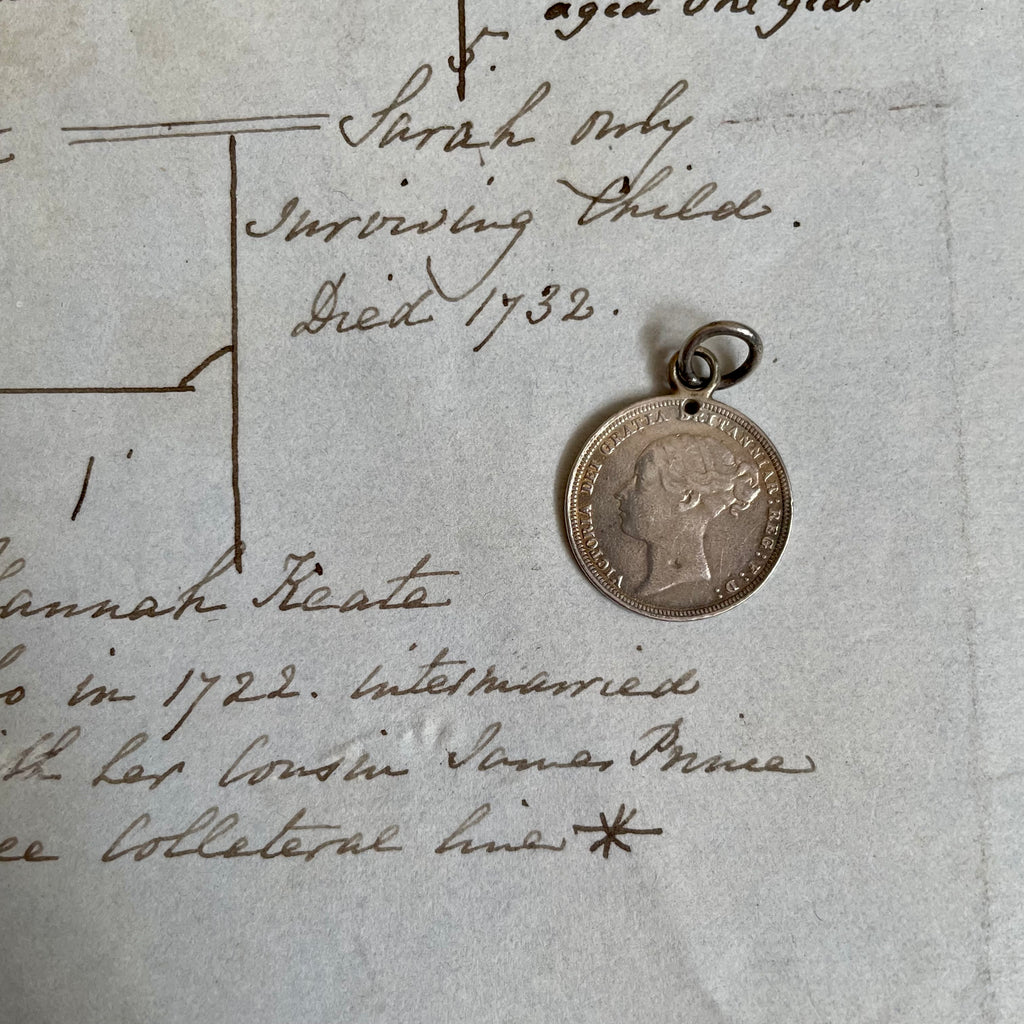 aged one year
5.
Sarah only
surviving Child.
Died 1732.
1
Hannah Keate
ho in 1722. intermarried
ith her Cousin James Prince
ee Collateral line *
VICTORIA DEI GRATIA BRITANNIAR: REG: F: D: